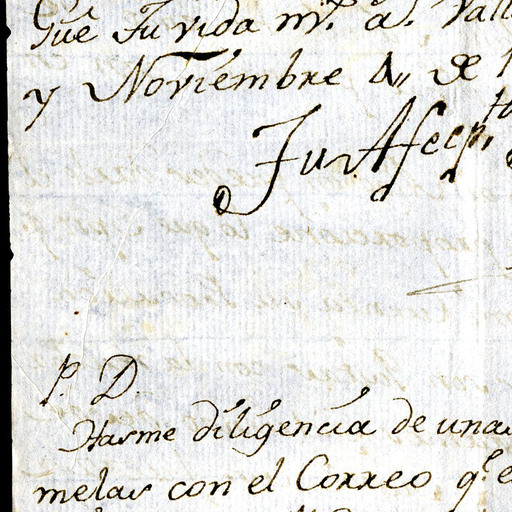 Gue Su vida m.s a.s Vall
y Noviembre 4,, de 1
Su Afecp.to
P. D.
Hasme diligencia de unas
melas con el Correo q.e e